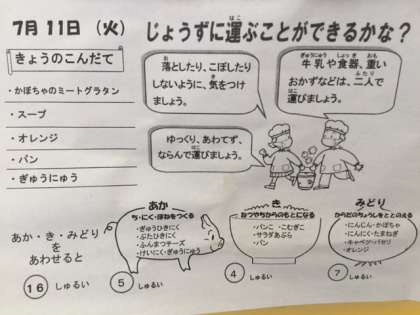 7月11日（火） じょうずに運ぶことができるかな？
はこ
きょうのこんだて
・かぼちゃのミートグラタン
・スープ
・オレンジ
・パン
・ぎゅうにゅう
落としたり、こぼしたり
しないように、気をつけ
ましょう。
牛乳や食器、重い
おかずなどは、二人で
運びましょう。
ゆっくり、あわてず、
ならんで運びましょう。
あか・き・みどり
を
あわせると
16 しゅるい
あか
ち・にく・ほねをつくる
・ぎゅうひきにく
・ぶたひきにく
・ふんまつチーズ
・けいにく・ぎゅうにゅう
5 しゅるい
き
ねつやちからのもとになる
・パンこ ・こむぎこ
・サラダあぶら
・パン
4 しゅるい
みどり
からだのちょうしをととのえる
・にんじん・かぼちゃ
・にんにく・たまねぎ
・キャベツ・パセリ
・オレンジ
7 しゅるい